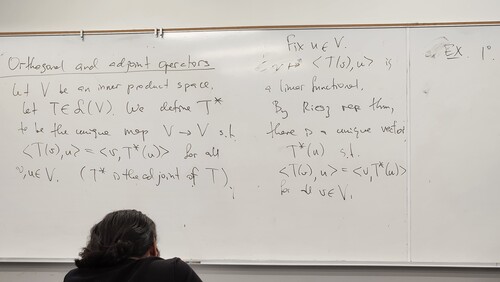 Orthogonal and adjoint operators
Let V be an inner product space.
Let T ∈ L(V). We define T*
to be the unique map V → V s.t.
<T(v), u> = <v, T*(u)> for all
v, u ∈ V. (T* is the adjoint of T).
Fix u ∈ V.
v ↦ <T(v), u> is
a linear functional.
By Riesz rep thm,
there is a unique vector
T*(u) s.t.
<T(v), u> = <v, T*(u)>
for all v ∈ V.
EX 1°